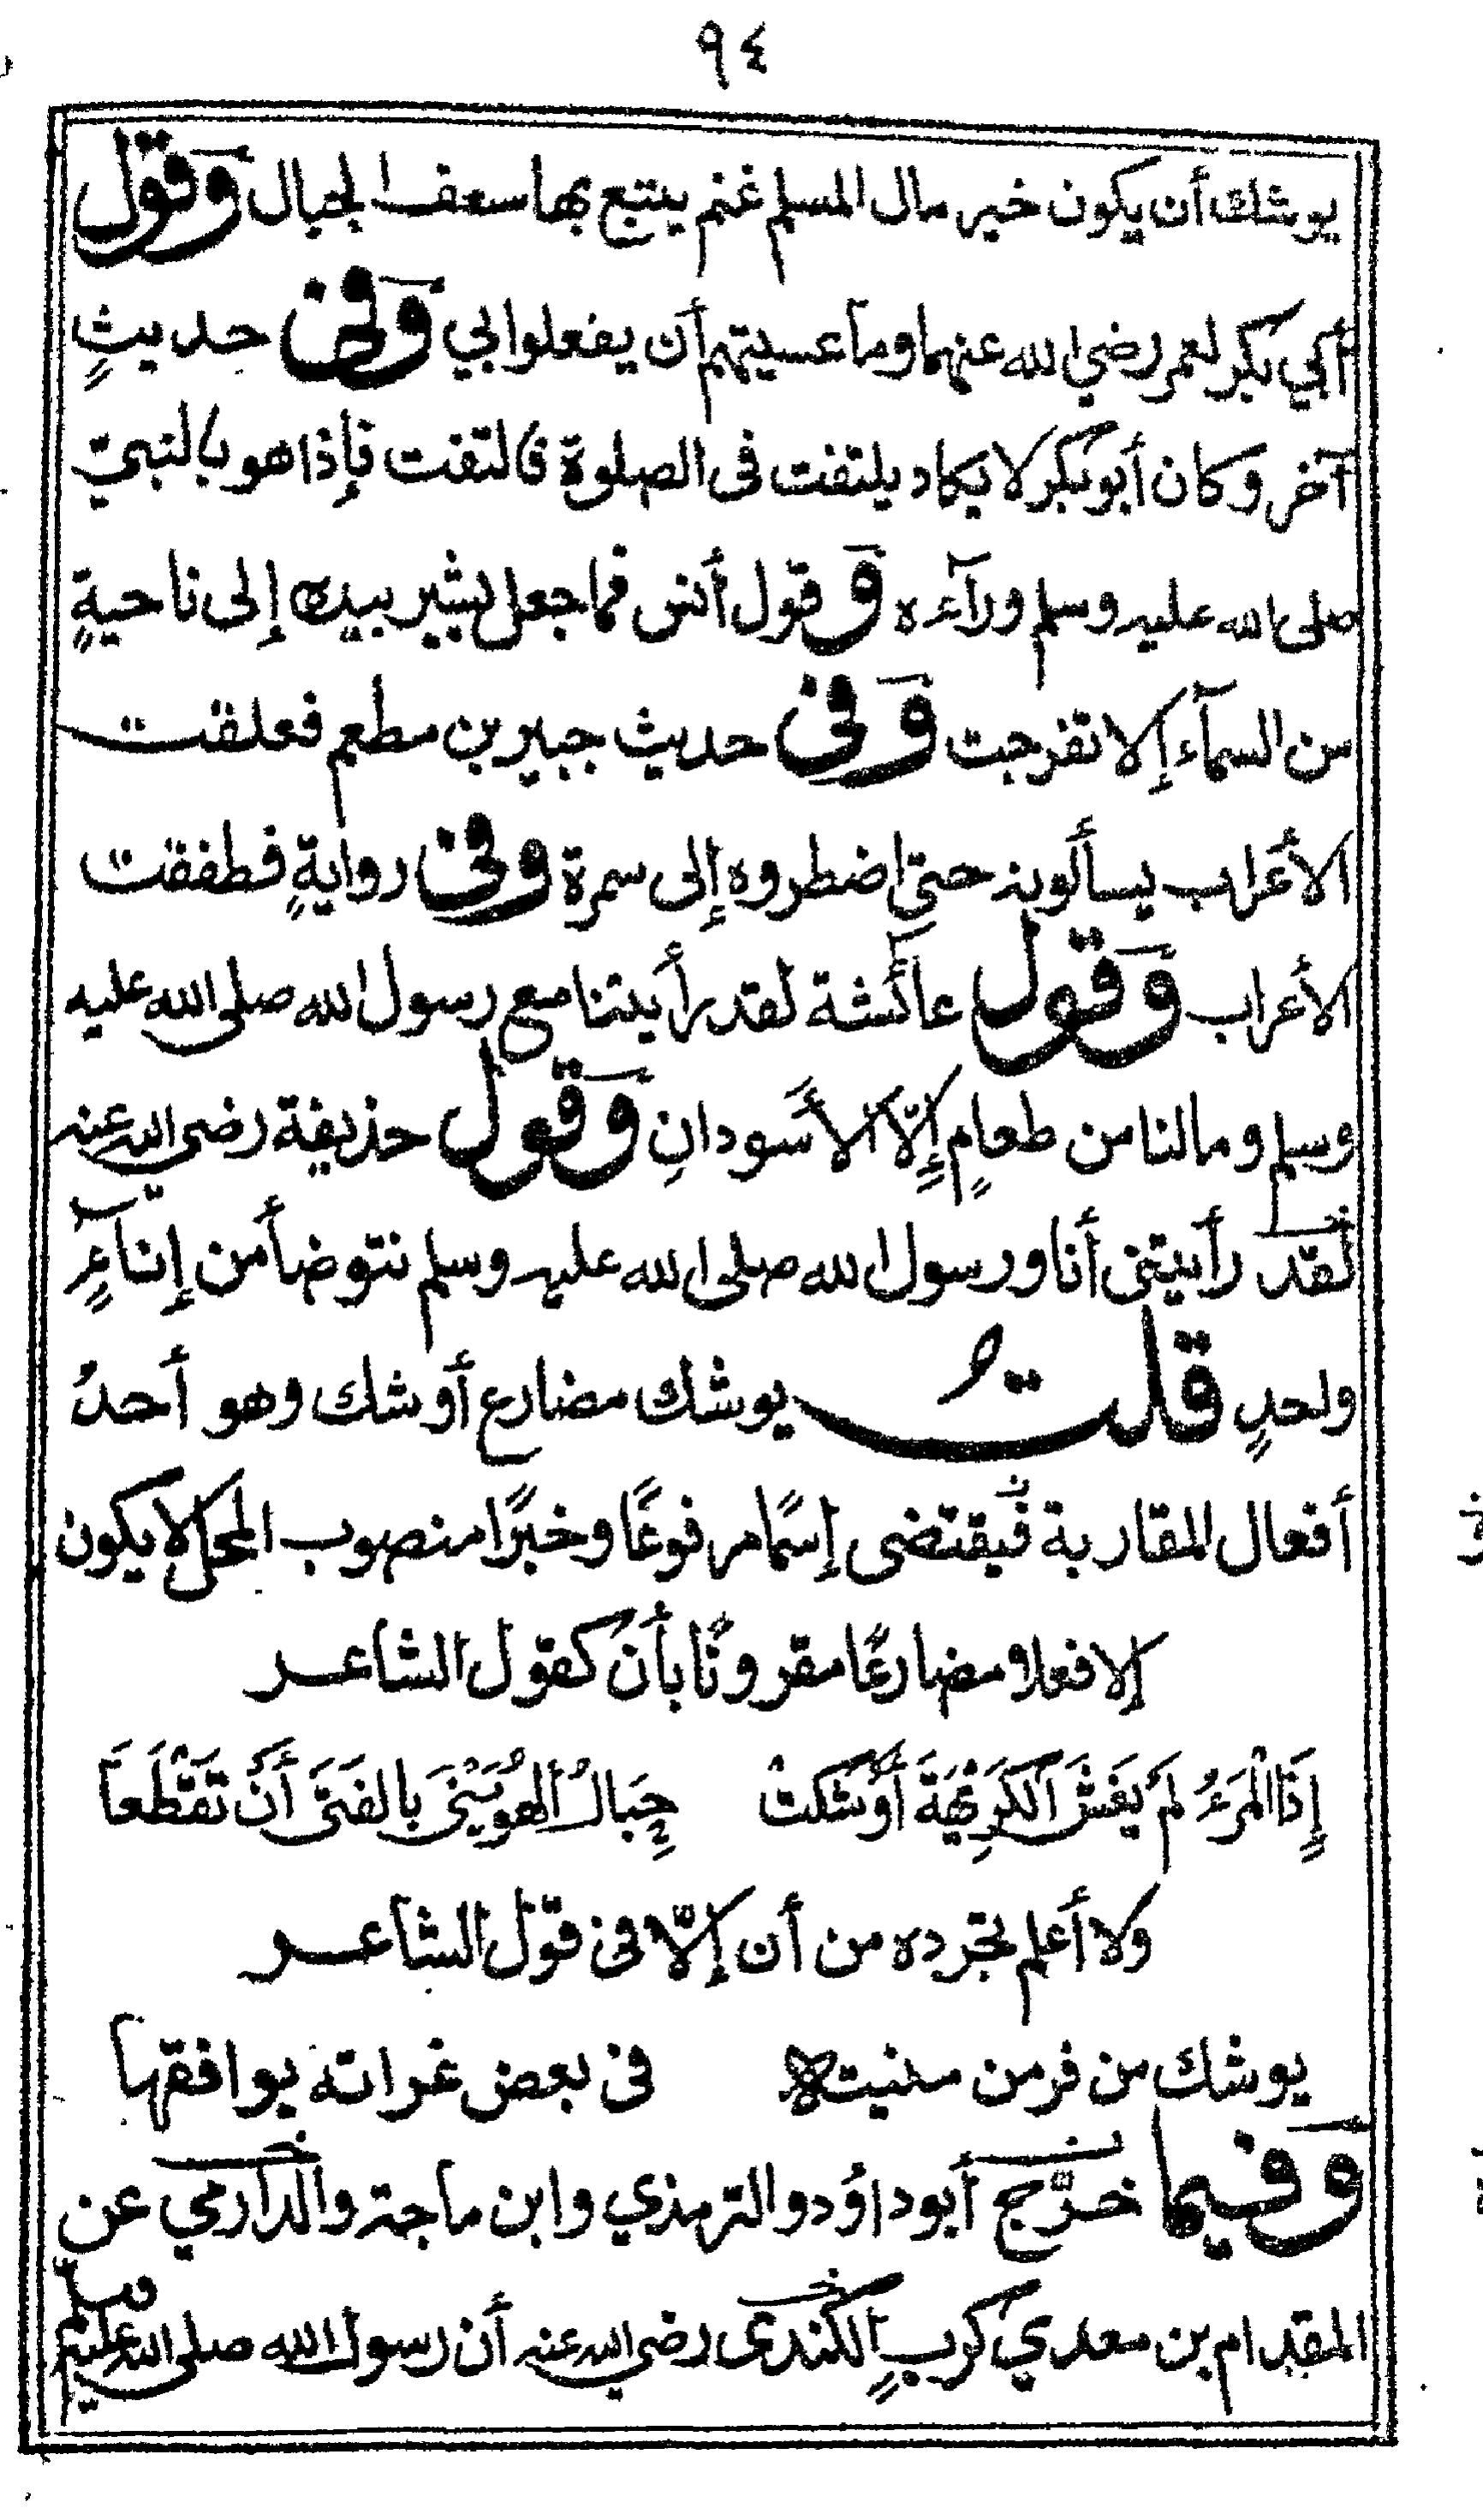 ٩٤
يوشك أن يكون خير مال المسلم غنم يتبع بها سعف الجبال وَقول
أبي بكر لعمر رضي الله عنهما وما عسيتهم أن يفعلوا بي وَفى حديثٍ
آخر وكان أبو بكر لا يكاد يلتفت فى الصلوة فالتفت فإذا هو بالنبيّ
صلى الله عليه وسلم ورآءه وَقول أنس فما جعل يشير بيده إلى ناحيةٍ
من السمآء إلا تفرجت وَفى حديث جبير بن مطعم فعلقت
الأعراب يسألونه حتى اضطروه إلى سمرة وفى روايةٍ فطفقت
الأعراب وَقول عائشة لقد رأيتنا مع رسول الله صلى الله عليه
وسلم وما لنا من طعامٍ إلّا الأسودانِ وَقول حذيفة رضى الله عنه
لقد رأيتنى أنا ورسول الله صلى الله عليه وسلم نتوضأ من إناءٍ
واحدٍ قلت يوشك مضارع أوشك وهو أحدُ
أفعال المقاربة فيقتضى إسمًا مرفوعًا وخبرًا منصوب المحل لا يكون
إلا فعلا مضارعًا مقرونًا بأن كقول الشاعر
إِذَا الْمَرءُ لَم يَغشَ الكَرِيهَةَ أَوْشَكتْ حِبَالُ الهُوَيْنَى بِالفَتَى أَنْ تَقَطَّعَا
ولا أعلم تجرده من أن إلّا فى قول الشاعر
يوشك من فر من منيته فى بعض غراته يوافقها
وَفيما خرّج أبو داؤد والترمذي وابن ماجة والدارمي عن
المقدام بن معدي كربٍ الكندى رضي الله عنه أن رسول الله صلى الله عليه وسلم